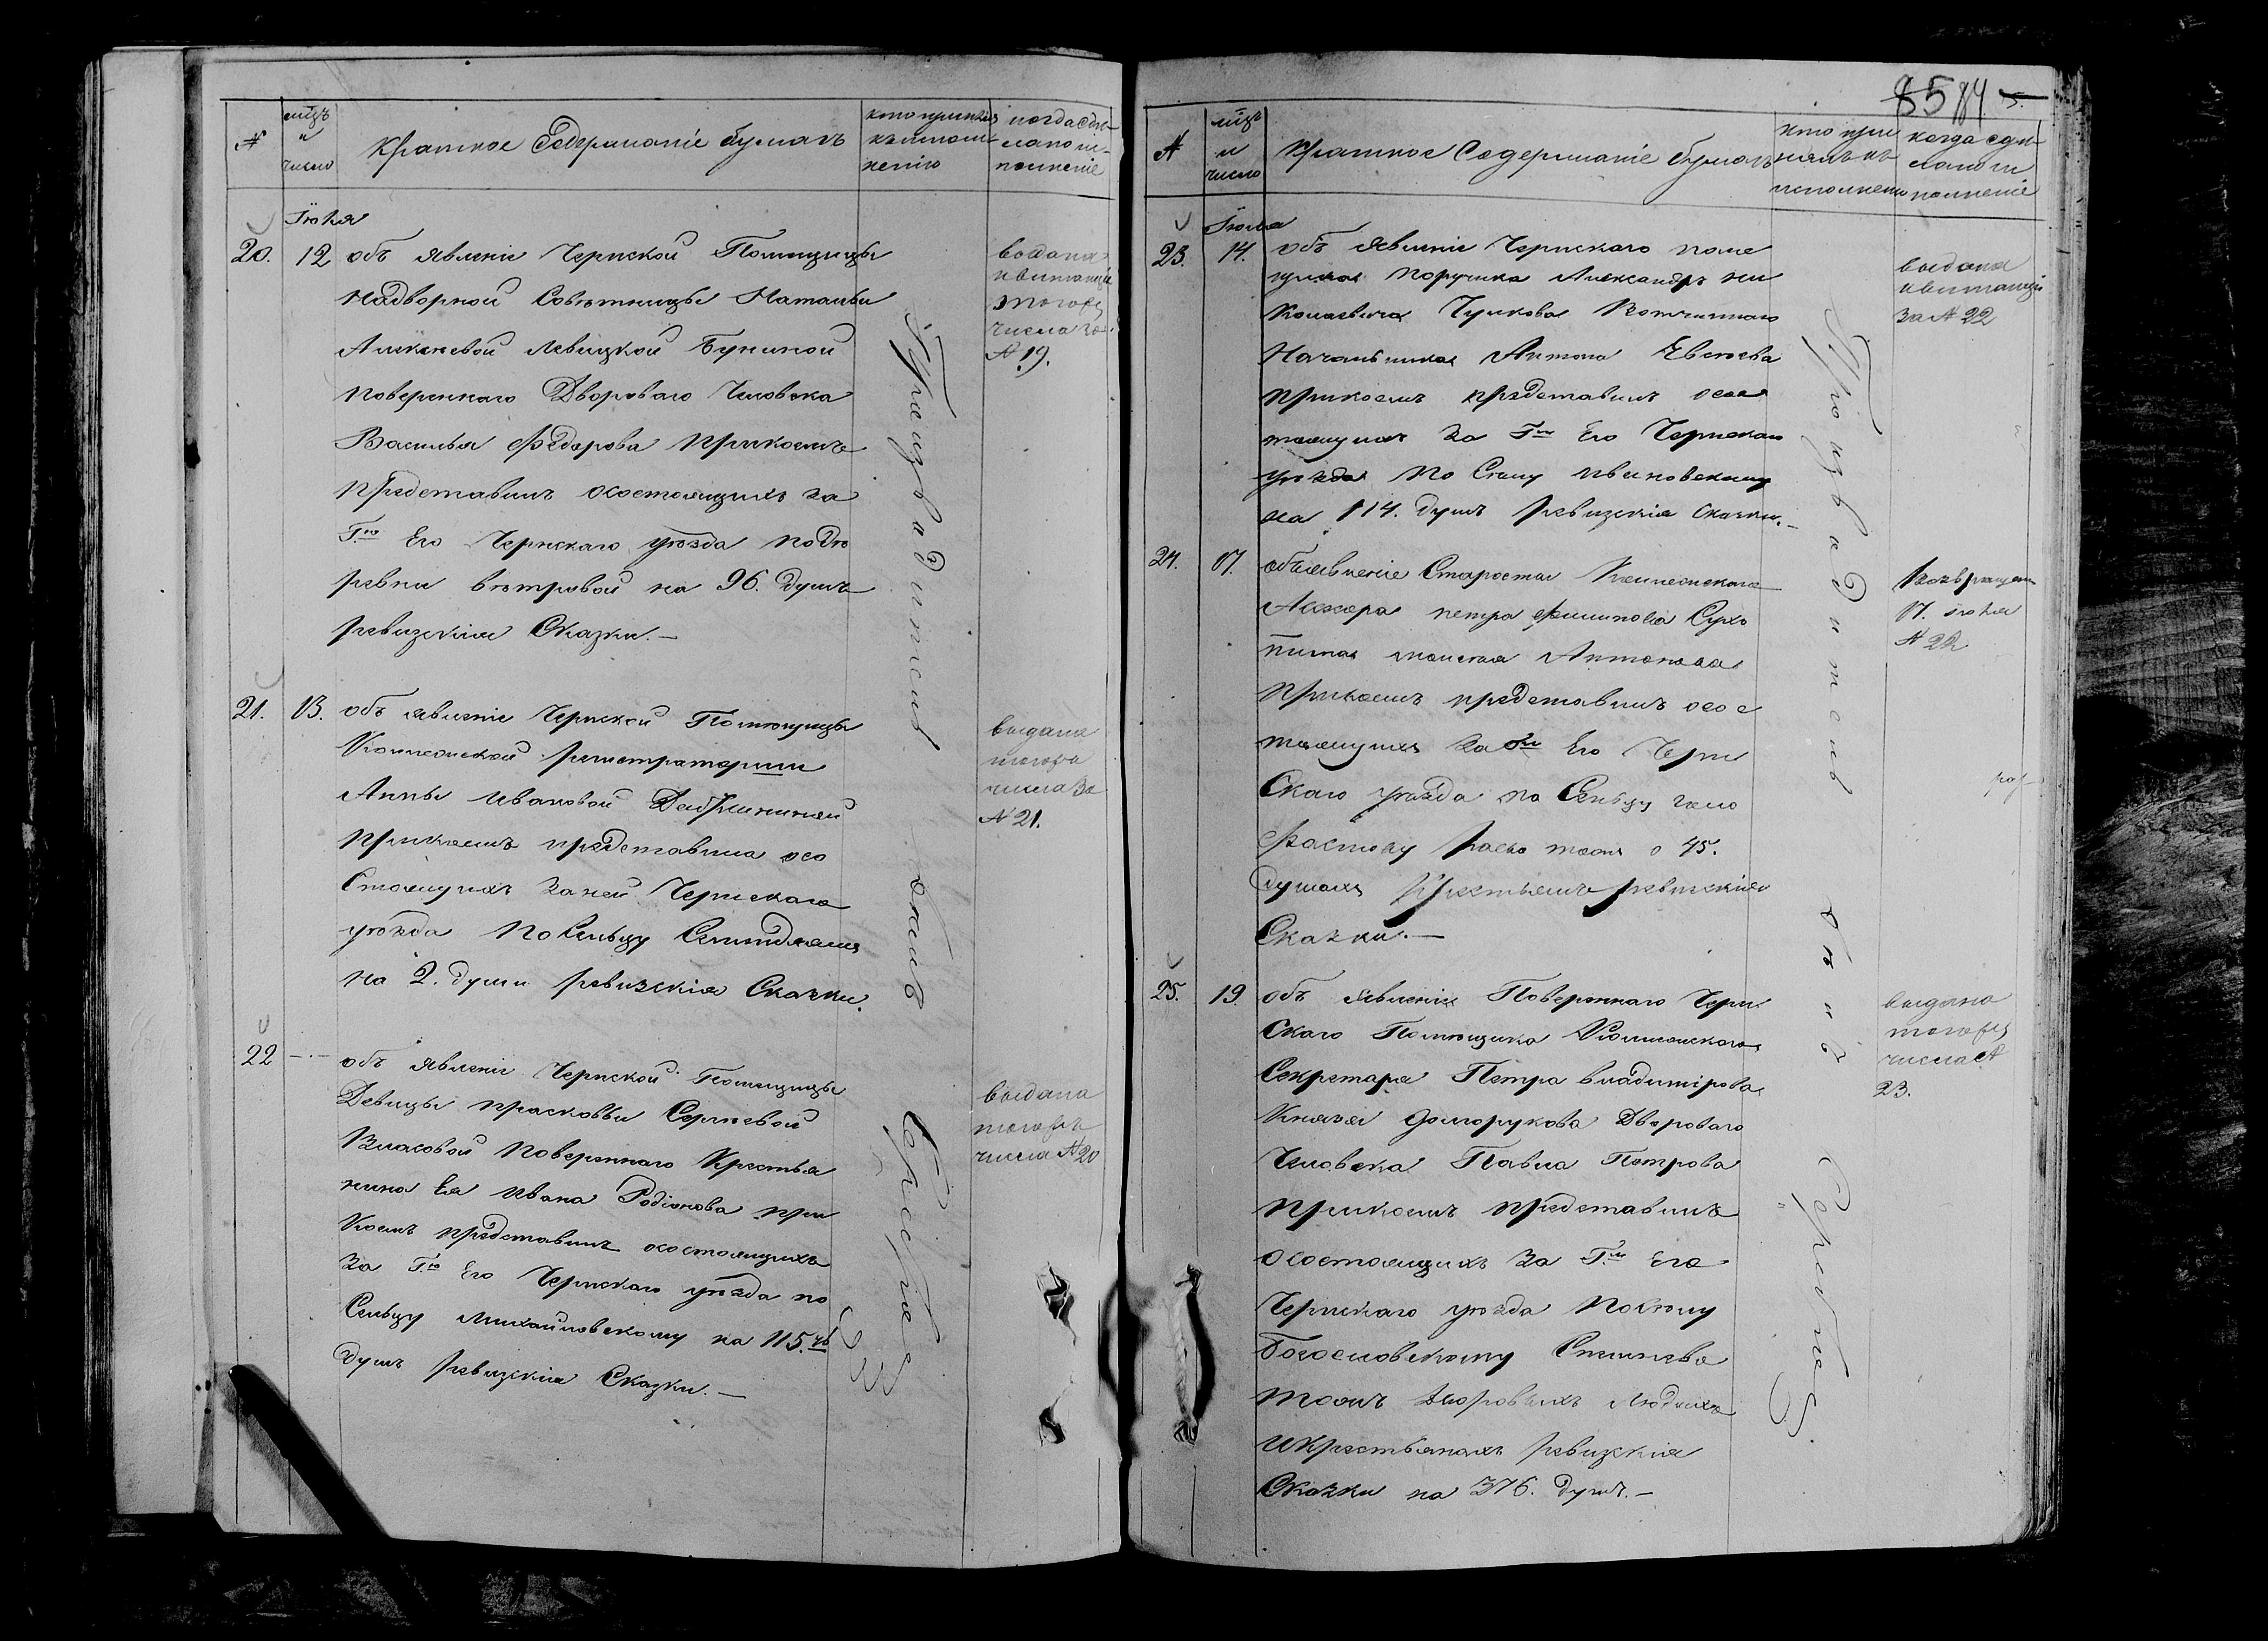 №
мцъ
и
число
Краткое Содержаніе бумагъ
кто принялъ
къ исполн
нению
когда сдѣ-
лано ис-
полненіе
Іюня
20.
12
объ явленіе Чернской Помещицы
Надворной Совѣтницы Натальи
Алексѣевой Левицкой Буниной
поверенного Двороваго Человека
Василья Федорова прикоемъ
представилъ осостоящихъ за
Г.жю Его Чернскаго уѣзда подѣ
ревни вѣтровой на 96. душъ
ревизскія Сказки.—
выдана
квитанція
тогожъ
числа за
№ 19.
21.
13.
объ явленіе Чернской Помѣщицы
Колежской регистраторши
Анны Ивановой
прикоемъ представила осо
Стоящихъ За ней Чернскаго
уѣзда По Сельцу
на 2. души ревизскія Сказки.
выдана
тогожъ
числа За
№ 21.
22
— . —
объ явленіе Чернской Помещицы
Девицы прасковьи Сергѣевой
Власовой Повереннаго Крестья
нина Ея Ивана Родіонова при
Коемъ представилъ осостоящихъ
За Г.жю Его Чернскаго уѣзда по
Сельцу Михайловскому на 115.ть
душъ ревизскія Сказки.—
выдана
тогожъ
числа № 20
Производитель
Сергѣевъ
85 84
№
мцъ
и
число
Краткое Содержаніе бумагъ
кто при
нялъ къ
исполнению
когда сдѣ-
лано ис
полненіе
Іюня
23.
14.
объ явленіе Чернскаго поме
щика Поручика Александра Ни
колаевича Чулкова Вотчиннаго
Начальника Антона Евсѣева
прикоемъ представилъ осос
тоящихъ За Г.мъ Его Чернскаго
уѣзда По Селу Ивановскому
на 114. душъ ревизскія Сказки.—
выдана
квитанція
За № 22
24.
17.
объявленіе Старосты Колежскаго
Асесора петра Филипова Сухо
тина Антонова
прикоемъ представилъ осос
тоящихъ За Г.мъ Его Черн
Скаго уѣзда по Сельцу
о 45.
душахъ Крестьянъ ревизскія
Сказки.—
Возвращен
17. июня
№ 22
25.
19.
объ явленіе Повереннаго Черн
Скаго Помѣщика Колежскаго
Секретаря Петра владимірова
Князя долгорукова Двороваго
Человека Павла Петрова
прикоемъ представилъ
осостоящихъ За Г.мъ Его
Чернскаго уѣзда По Селу
Богословскому
Дворовыхъ людяхъ
и крестьянахъ ревизскія
Сказки на 376. душъ.—
выдана
тогожъ
числа №
23.
Производитель
Сергѣевъ